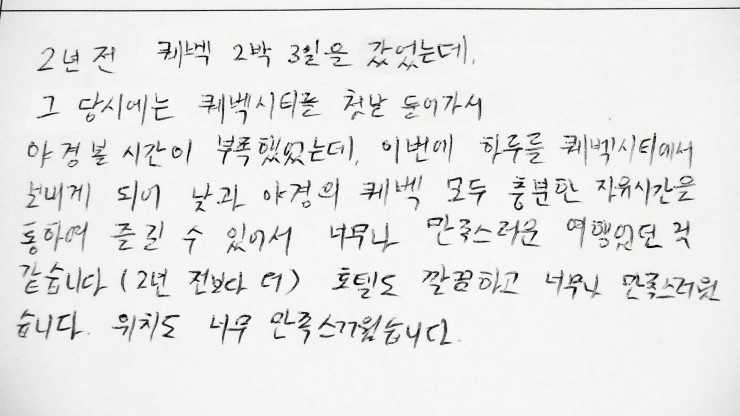 2년 전 퀘벡 2박 3일을 갔었는데,
그 당시에는 퀘벡시티를 첫날 들어가서
야경볼 시간이 부족했었는데, 이번에 하루를 퀘벡시티에서
보내게 되어 낮과 야경의 퀘벡 모두 충분한 자유시간을
통하여 즐길 수 있어서 너무나 만족스러운 여행었던 것
같습니다 (2년 전보다 더) 호텔도 깔끔하고 너무나 만족스러웠
습니다. 위치도 너무 만족스러웠습니다.